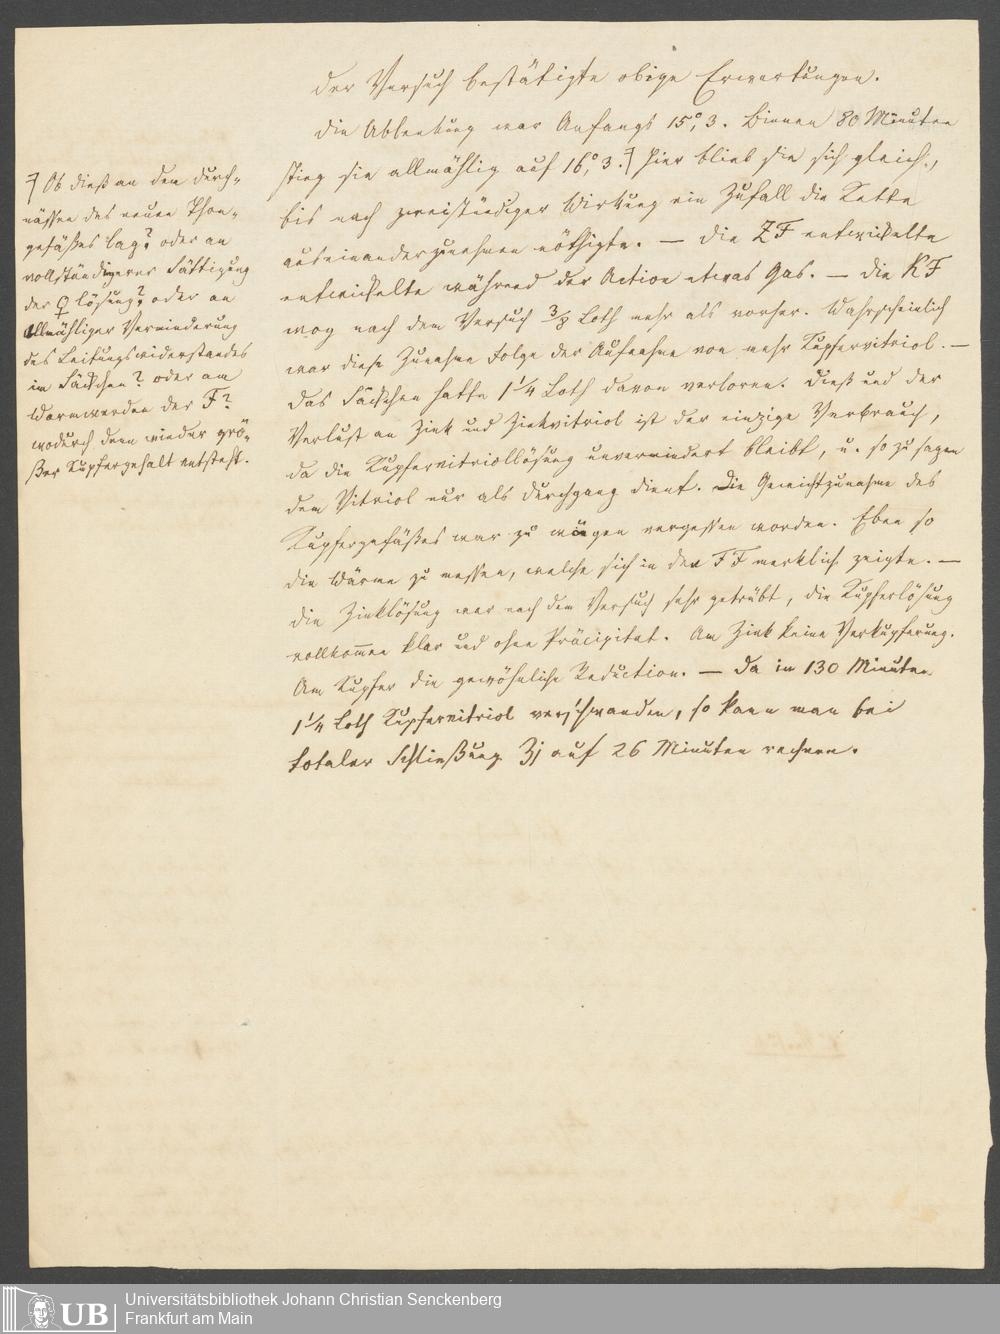 Der Versuch bestätigte obige Erwartungen.
Die Ablenkung war Anfangs 15°,3. Binnen 80 Minuten
stieg sie allmählig auf 16°,3.⌉ Hier blieb sie sich gleich,
bis nach zweistündiger Wirkung ein Zufall die Kette
auseinanderzunehmen nöthigte. — Die ZF entwickelte
entwickelte während der Action etwas Gas. — Die KF
wog nach dem Versuch 3/8 Loth mehr als vorher. Wahrscheinlich
war diese Zunahme Folge der Aufnahme von mehr Kupfervitriol. —
Das Säckchen hatte 1 1/4 Loth davon verloren. Dieß und der
Verlust an Zink und Zinkvitriol ist der einzige Verbrauch,
da die Kupfervitriollösung unvermindert bleibt, u. so zu sagen
dem Vitriol nur als Durchgang dient. Die Gewichtzunahme des
Kupfergefäßes war zu wägen vergessen worden. Eben so
die Wärme zu messen, welche sich in den FF merklich zeigte. —
Die Zinklösung war nach dem Versuch sehr getrübt, die Kupferlösung
vollkommen klar und ohne Präcipitat. Am Zink keine Verkupferung.
Am Kupfer die gewöhnliche Reduction. — Da in 130 Minuten
1 1/4 Loth Kupfervitriol verschwanden, so kann man bei
totaler Schließung ʒj auf 26 Minuten rechnen.
⌉ Ob dieß an dem Durch-
nässen des neuen Thon-
gefäßes lag? oder an
vollständigerer Sättigung
der ♀ lösung? oder an
allmähliger Verminderung
des Leitungswiderstandes
im Säckchen? oder am
Warmwerden der F?
wodurch denn wieder grö-
ßer Kupfergehalt entsteht.
UB
Universitätsbibliothek Johann Christian Senckenberg
Frankfurt am Main